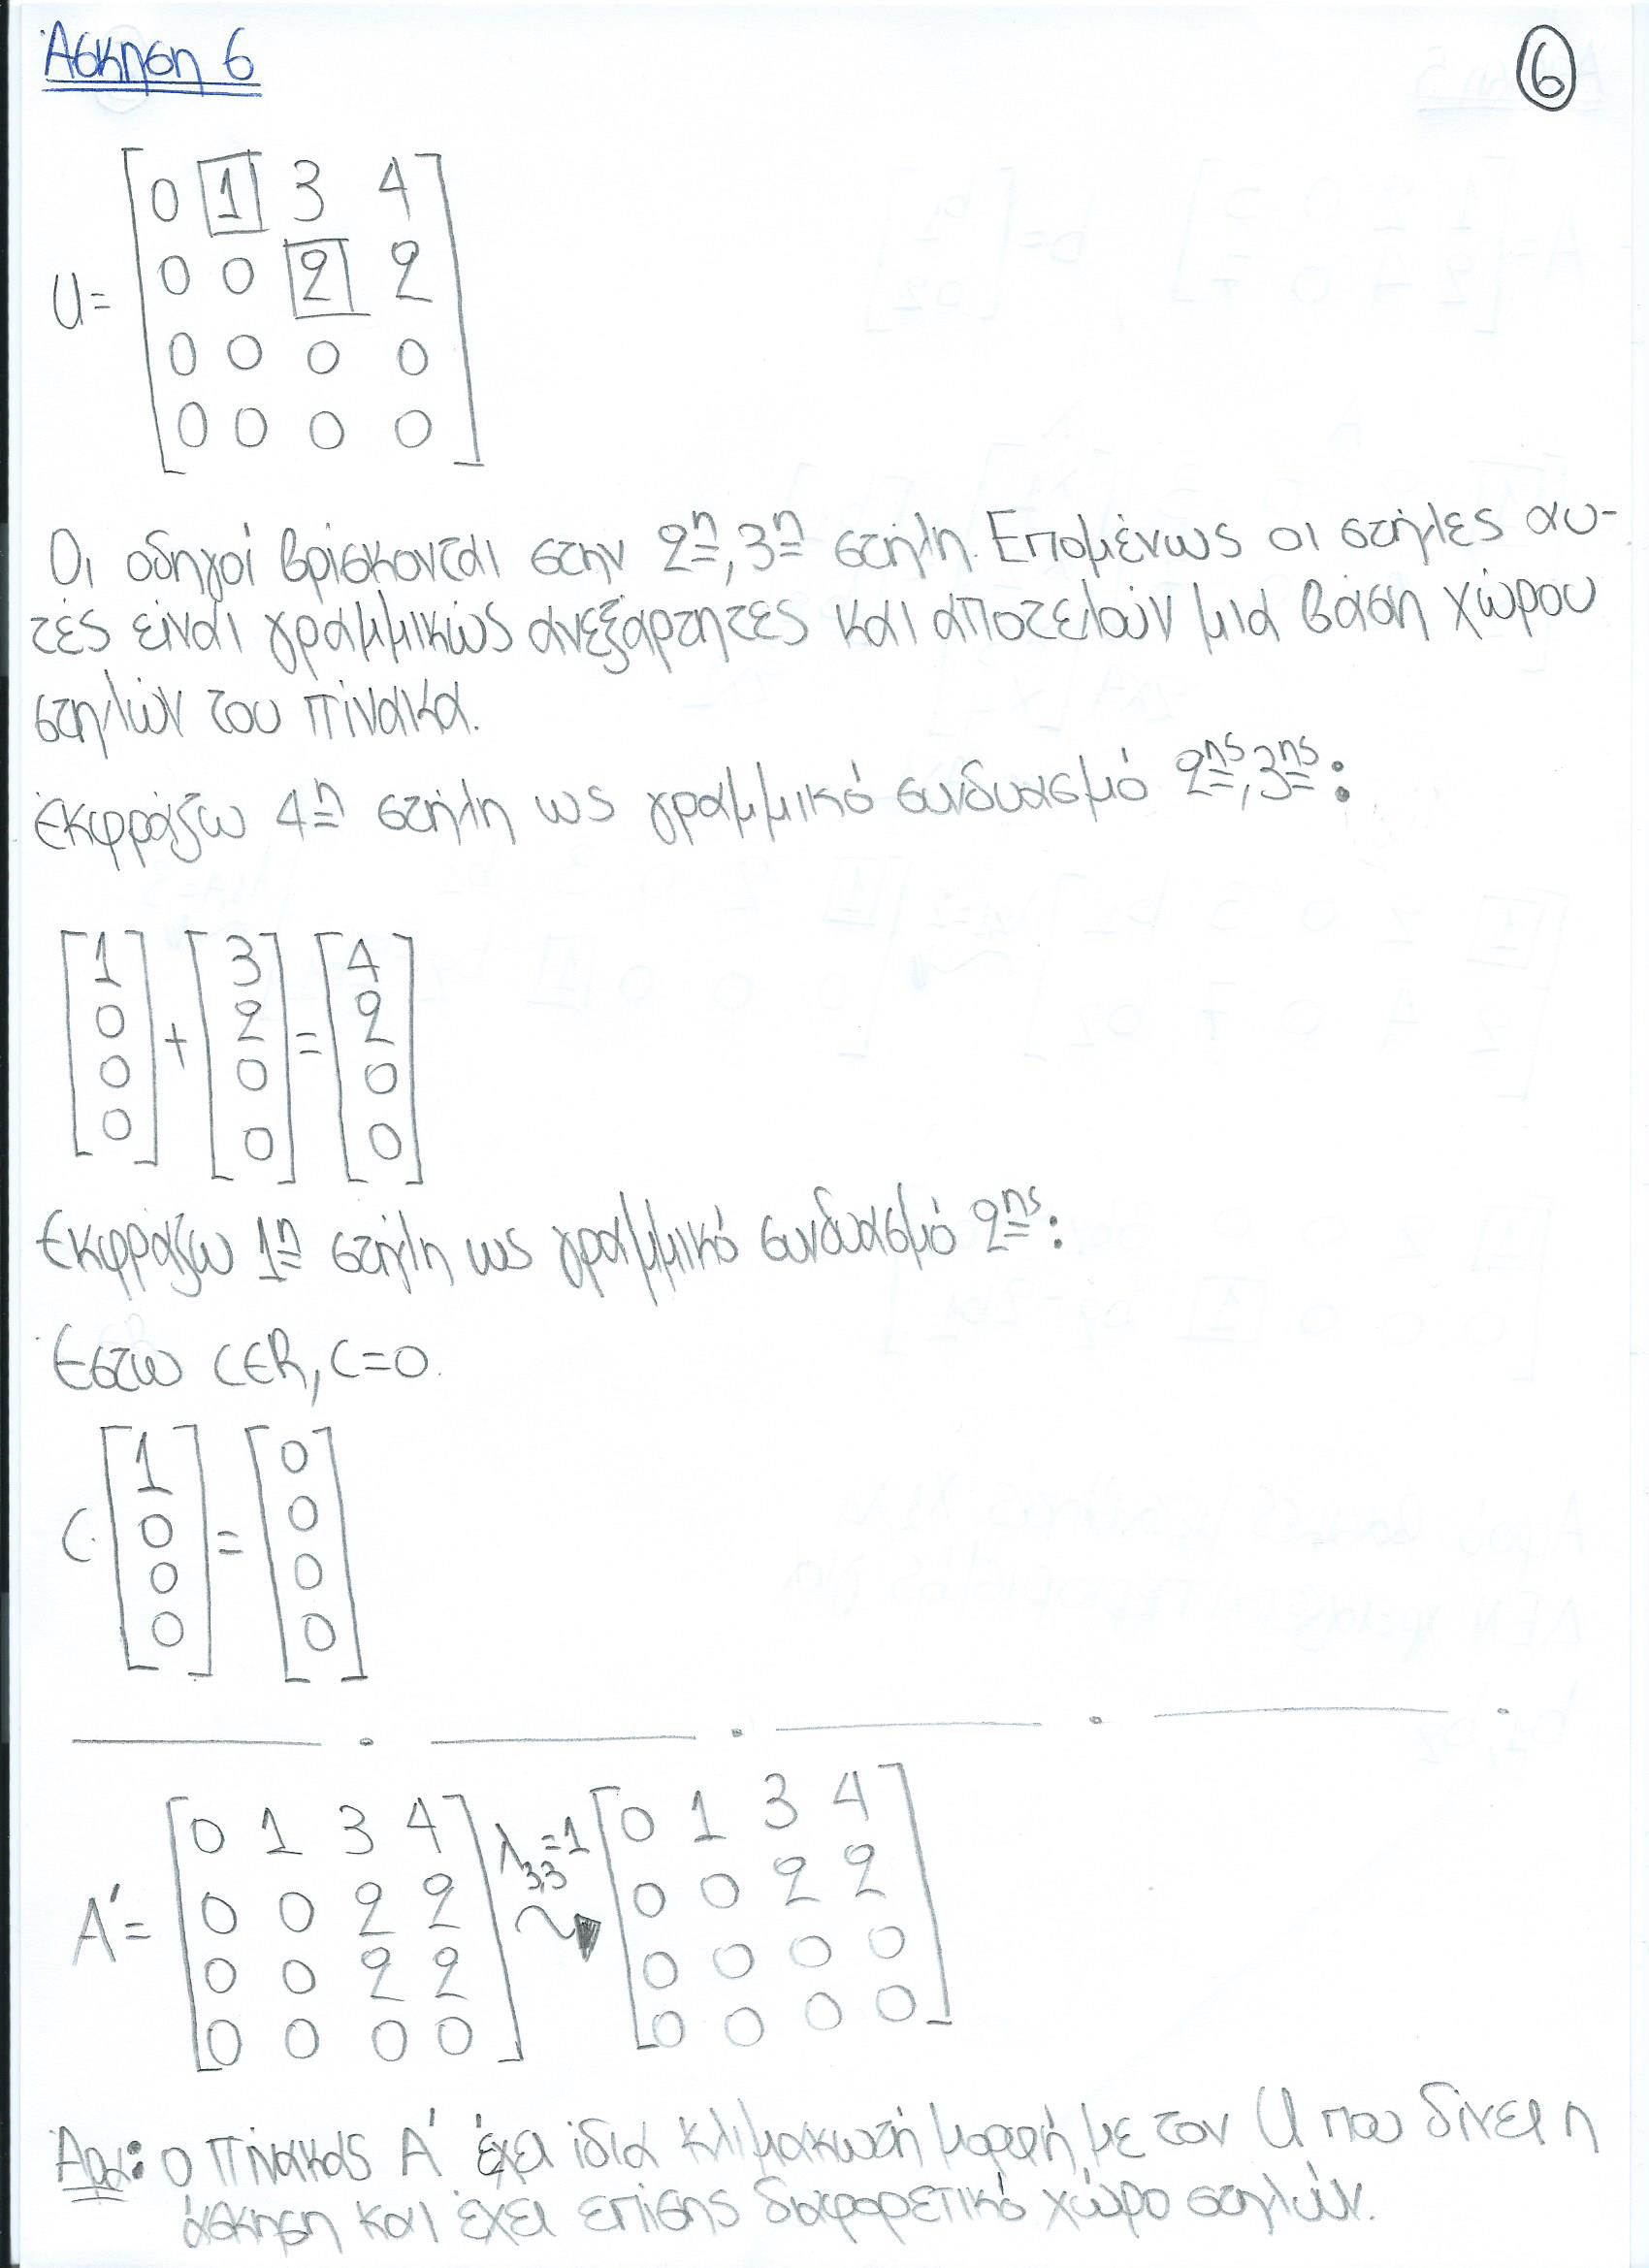 Άσκηση 6
6
U= [0 1 3 4
0 0 2 2
0 0 0 0
0 0 0 0]
Οι οδηγοί βρίσκονται στην 2η, 3η στήλη. Επομένως οι στήλες αυ-
τές είναι γραμμικώς ανεξάρτητες και αποτελούν μια βάση χώρου
στηλών του πίνακα.
Εκφράζω 4η στήλη ως γραμμικό συνδυασμό 2ης, 3ης:
[1 0 0 0] + [3 2 0 0] = [4 2 0 0]
Εκφράζω 1η στήλη ως γραμμικό συνδυασμό 2ης:
Έστω C∈R, C=0.
C· [1 0 0 0] = [0 0 0 0]
A'= [0 1 3 4 λ3,3=1 [0 1 3 4
0 0 2 2 0 0 2 2
0 0 2 2 0 0 0 0
0 0 0 0] 0 0 0 0]
Άρα: ο πίνακας A' έχει ίδια κλιμακωτή μορφή με τον U που δίνει η
άσκηση και έχει επίσης διαφορετικό χώρο στηλών.